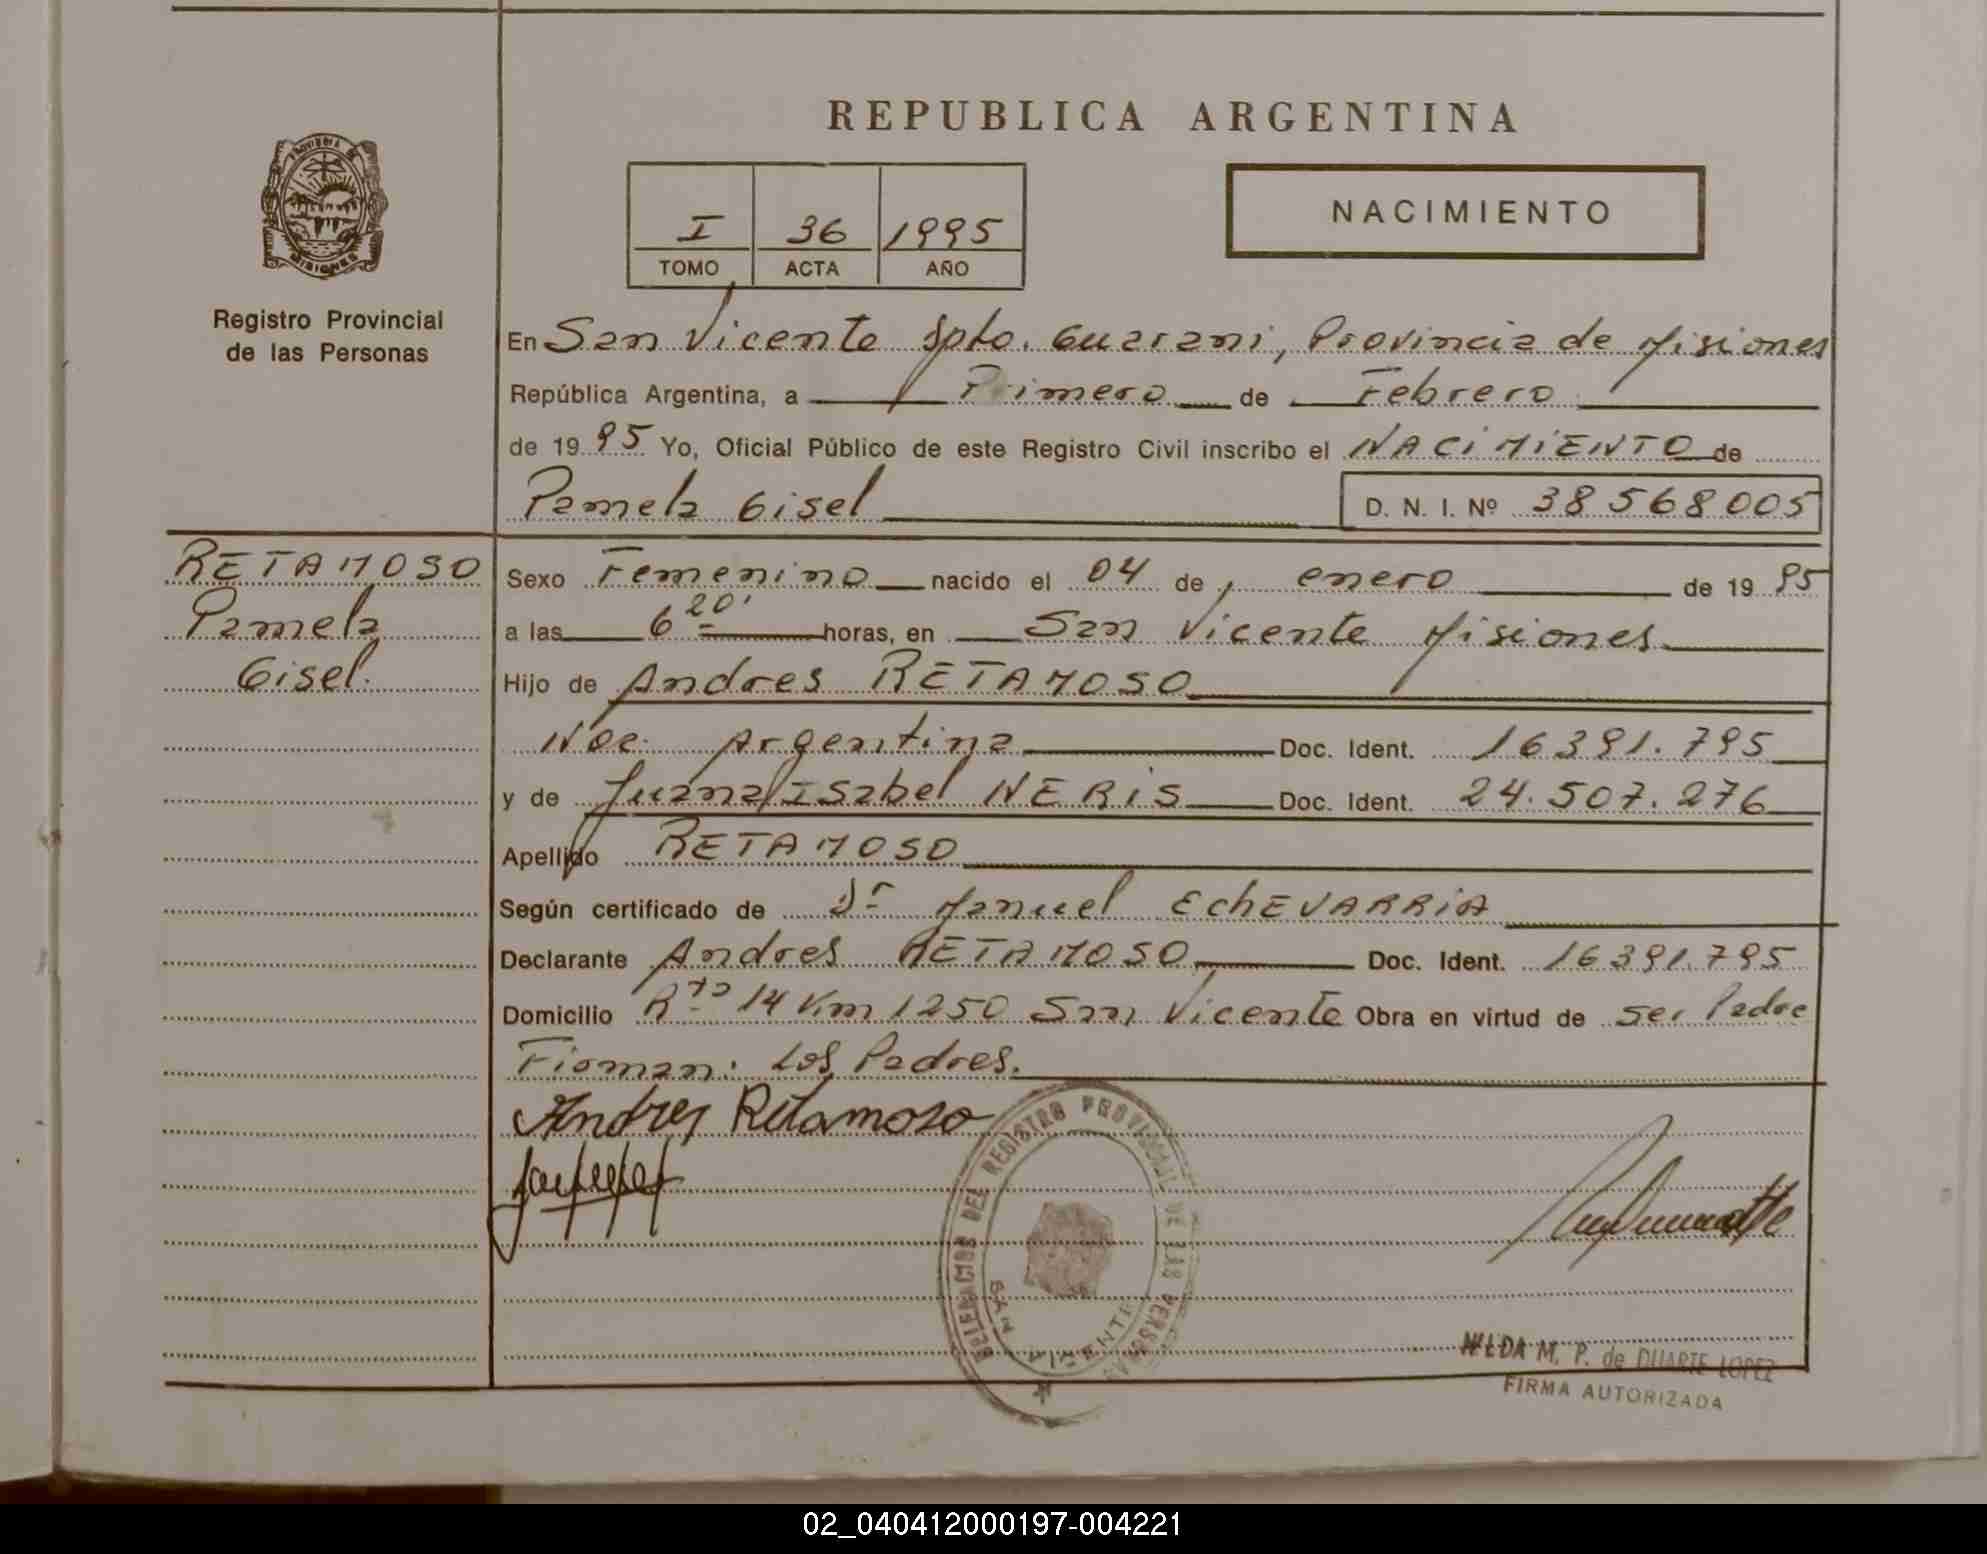 REPUBLICA ARGENTINA
PROVINCIA DE
MISIONES
I 36 1995
TOMO ACTA AÑO
NACIMIENTO
Registro Provincial
de las Personas
En San Vicente Dpto. Guarani, Provincia de Misiones
República Argentina, a Primero de Febrero
de 1995 Yo, Oficial Público de este Registro Civil inscribo el NACIMIENTO de
Pamela Gisel D. N. I. Nº 38568005
RETAMOSO
Pamela
Gisel.
Sexo Femenino nacido el 04 de enero de 1995
a las 6 20' horas, en San Vicente Misiones
Hijo de Andres RETAMOSO
Nac. Argentina Doc. Ident. 16391.795
y de Juana Isabel NERIS Doc. Ident. 24.507.276
Apellido RETAMOSO
Según certificado de Dr Manuel EchEVARRIA
Declarante Andres RETAMOSO Doc. Ident. 16391.795
Domicilio Rta 14 Km 1250 San Vicente Obra en virtud de ser Padre
Firman: Los Padres.
Andres Retamoso
DELEGACION DEL REGISTRO PROVINCIAL DE LAS PERSONAS
SAN VICENTE
NILDA M. P. de DUARTE LOPEZ
FIRMA AUTORIZADA
02_040412000197-004221